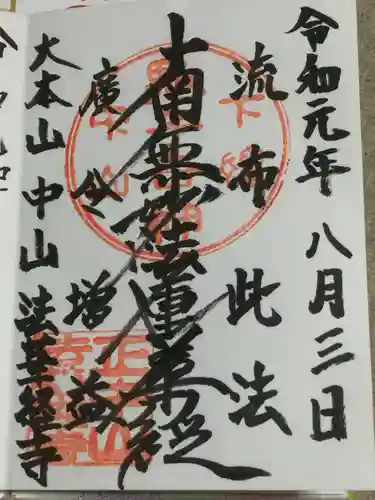 令和元年八月三日
流布此法
南無妙法蓮華経
廣令増益
大本山中山法華経寺